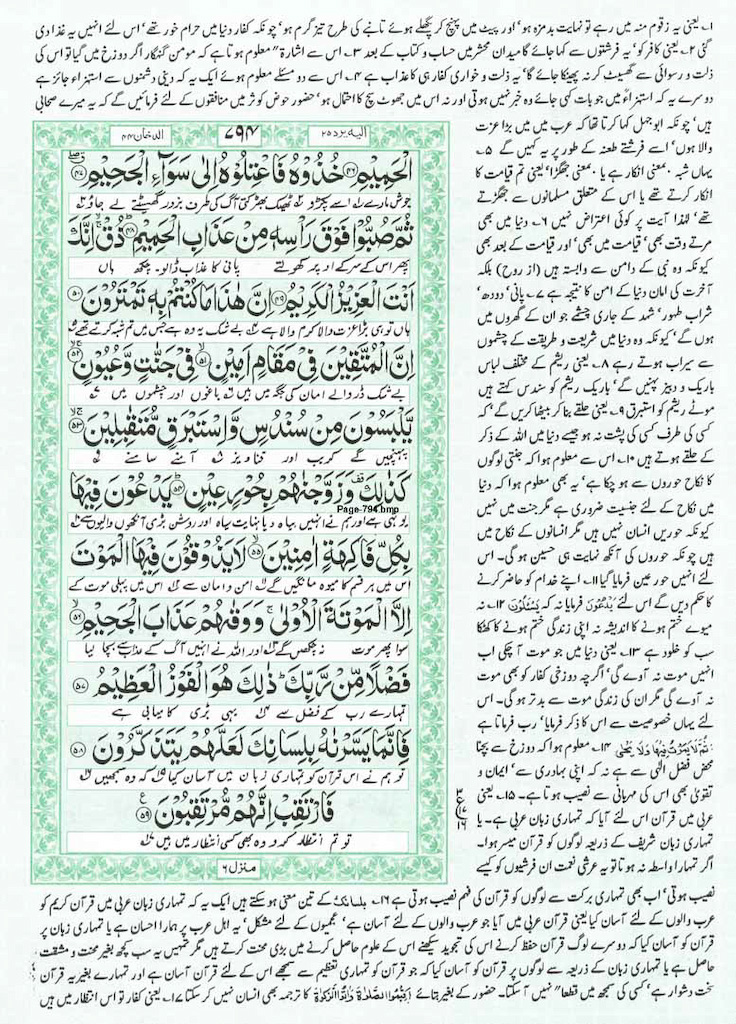 ۱۔ یعنی یہ زقوم منہ میں رہے تو نہایت بدمزہ ہو' اور پیٹ میں پہنچ کر پگھلے ہوئے تانبے کی طرح تیز گرم ہو' چونکہ کفار دنیا میں حرام خور تھے' اس لئے انہیں یہ غذا دی
گئی ۲۔ یعنی کافر کو' یہ فرشتوں سے کہا جائے گا میدان محشر میں حساب و کتاب کے بعد ۳۔ اس سے اشارۃً معلوم ہوتا ہے کہ مومن گنہگار اگر دوزخ میں گیا تو اس کی
ذلت و رسوائی سے گھسیٹ کر نہ پھینکا جائے گا' یہ ذلت و خواری کفار ہی کا عذاب ہے ۴۔ اس سے دو مسئلے معلوم ہوئے ایک یہ کہ دینی دشمنوں سے استہزاء جائز ہے
دوسرے یہ کہ استہزاءً میں جو بات کہی جائے وہ خبر نہیں ہوتی اور نہ اس میں جھوٹ سچ کا احتمال ہو' حضور حوض کوثر میں منافقوں کے لئے فرمائیں گے کہ یہ میرے صحابی
الیہ یرد ۲۵
۷۹۴
الدخان ۴۴
الْحَمِيْمِ ۴۶ خُذُوْهُ فَاعْتِلُوْهُ اِلٰى سَوَآءِ الْجَحِيْمِ ۴۷
جوش مارے ۱؎ اسے پکڑو ۲؎ ٹھیک بھڑکتی آگ کی طرف بزور گھسیٹتے لے جاؤ ۳؎
ثُمَّ صُبُّوْا فَوْقَ رَاْسِهٖ مِنْ عَذَابِ الْحَمِيْمِ ۴۸ ذُقْ اِنَّكَ
پھر اس کے سر کے اوپر کھولتے پانی کا عذاب ڈالو۔ چکھ ہاں
اَنْتَ الْعَزِيْزُ الْكَرِيْمُ ۴۹ اِنَّ هٰذَا مَا كُنْتُمْ بِهٖ تَمْتَرُوْنَ ۵۰
ہاں تو ہی بڑا عزت والا کرم والا ہے ۴؎ بے شک یہ وہ ہے جس میں تم شبہ کرتے تھے ۵؎
اِنَّ الْمُتَّقِيْنَ فِيْ مَقَامٍ اَمِيْنٍ ۵۱ فِيْ جَنّٰتٍ وَّعُيُوْنٍ ۵۲
بے شک ڈر والے امان کی جگہ میں ہیں ۶؎ باغوں اور چشموں میں ۷؎
يَّلْبَسُوْنَ مِنْ سُنْدُسٍ وَّاِسْتَبْرَقٍ مُّتَقٰبِلِيْنَ ۵۳
پہنیں گے کریب اور قناویز ۸؎ آمنے سامنے ۹؎
كَذٰلِكَ وَزَوَّجْنٰهُمْ بِحُوْرٍ عِيْنٍ ۵۴ يَدْعُوْنَ فِيْهَا
Page-794.bmp
یوں ہی ہے اور ہم نے انہیں بیاہ دیا نہایت سیاہ اور روشن بڑی آنکھوں والیوں سے ۱۰؎
بِكُلِّ فَاكِهَةٍ اٰمِنِيْنَ ۵۵ لَا يَذُوْقُوْنَ فِيْهَا الْمَوْتَ
اس میں ہر قسم کا میوہ مانگیں گے ۱۱؎ امن و امان سے ۱۲؎ اس میں پہلی موت کے
اِلَّا الْمَوْتَةَ الْاُوْلٰى وَوَقٰهُمْ عَذَابَ الْجَحِيْمِ ۵۶
سوا پھر موت نہ چکھیں گے ۱۳؎ اور اللہ نے انہیں آگ کے عذاب سے بچا لیا
فَضْلًا مِّنْ رَّبِّكَ ذٰلِكَ هُوَ الْفَوْزُ الْعَظِيْمُ ۵۷
تمہارے رب کے فضل سے ۱۴؎ یہی بڑی کامیابی ہے
فَاِنَّمَا يَسَّرْنٰهُ بِلِسَانِكَ لَعَلَّهُمْ يَتَذَكَّرُوْنَ ۵۸
تو ہم نے اس قرآن کو تمہاری زبان میں آسان کیا ۱۵؎ کہ وہ سمجھیں ۱۶؎
فَارْتَقِبْ اِنَّهُمْ مُّرْتَقِبُوْنَ ۵۹
تو تم انتظار کرو وہ بھی کسی انتظار میں ہیں ۱۷؎
منزل ۶
ہیں' چونکہ ابوجہل کہا کرتا تھا کہ عرب میں میں بڑا عزت
والا ہوں' اسے فرشتے طعنہ کے طور پر یہ کہیں گے ۵۔
یہاں شبہ بمعنی انکار ہے یا بمعنی جھگڑا' یعنی تم قیامت کا
انکار کرتے تھے یا اس کے متعلق مسلمانوں سے جھگڑتے
تھے' لہٰذا آیت پر کوئی اعتراض نہیں ۶۔ دنیا میں بھی
مرتے وقت بھی' قیامت میں بھی' اور قیامت کے بعد بھی
کیونکہ وہ نبی کے دامن سے وابستہ ہیں (از روح) بلکہ
آخرت کی امان دنیا کے امن کا نتیجہ ہے ۷۔ پانی' دودھ'
شراب طہور' شہد کے جاری چشمے جو ان کے گھروں میں
ہوں گے' کیونکہ وہ دنیا میں شریعت و طریقت کے چشموں
سے سیراب ہوتے رہے ۸۔ یعنی ریشم کے مختلف لباس
باریک و دبیز پہنیں گے' باریک ریشم کو سندس کہتے ہیں
موٹے ریشم کو استبرق ۹۔ یعنی حلقے بنا کر بیٹھا کریں گے' کہ
کسی کی طرف کسی کی پشت نہ ہو جیسے دنیا میں اللہ کے ذکر
کے حلقے ہوتے ہیں ۱۰۔ اس سے معلوم ہوا کہ جنتی لوگوں
کا نکاح حوروں سے ہو چکا ہے' یہ بھی معلوم ہوا کہ دنیا
میں نکاح کے لئے جنسیت ضروری ہے مگر جنت میں نہیں
کیونکہ حوریں انسان نہیں ہیں مگر انسانوں کے نکاح میں
ہیں چونکہ حوروں کی آنکھ نہایت ہی حسین ہو گی۔ اس
لئے انہیں حور عین فرمایا گیا ۱۱۔ اپنے خدام کو حاضر کرنے
کا حکم دیں گے اس لئے یدعون فرمایا نہ کہ یسئلون ۱۲۔ نہ
میوے ختم ہونے کا اندیشہ نہ اپنی زندگی ختم ہونے کا کھٹکا
سب کو خلود ہے ۱۳۔ یعنی دنیا میں جو موت آ چکی اب
انہیں موت نہ آوے گی' اگرچہ دوزخی کفار کو بھی موت
نہ آوے گی مگر ان کی زندگی موت سے بدتر ہو گی۔ اس
لئے یہاں خصوصیت سے اس کا ذکر فرمایا' رب فرماتا ہے
ثُمَّ لَا یَمُوْتُ فِیْهَا وَلَا یَحْیٰی ۱۴۔ معلوم ہوا کہ دوزخ سے بچنا
محض فضل الٰہی سے ہے نہ کہ اپنی بہادری سے' ایمان و
تقویٰ بھی اس کی مہربانی سے نصیب ہوتا ہے۔ ۱۵۔ یعنی
عربی میں قرآن اس لئے آیا کہ تمہاری زبان عربی ہے۔ یا
تمہاری زبان شریف کے ذریعہ لوگوں کو قرآن میسر ہوا۔
اگر تمہارا واسطہ نہ ہوتا تو یہ عرشی نعمت ان فرشیوں کو کیسے
نصیب ہوتی' اب بھی تمہاری برکت سے لوگوں کو قرآن کی فہم نصیب ہوتی ہے ۱۶۔ بلسانک کے تین معنی ہو سکتے ہیں ایک یہ کہ تمہاری زبان عربی میں قرآن کریم کو
عرب والوں کے لئے آسان کیا یعنی قرآن عربی میں آیا جو عرب والوں کے لئے آسان ہے' عجمیوں کے لئے مشکل' یہ اہل عرب پر ہمارا احسان ہے یا تمہاری زبان پر
قرآن کو آسان کیا کہ دوسرے لوگ قرآن حفظ کرنے اس کی تجوید سیکھنے اس کے علوم حاصل کرنے میں بڑی محنت کرتے ہیں مگر تمہیں یہ سب کچھ بغیر محنت و مشقت
حاصل ہے یا تمہاری زبان کے ذریعہ سے لوگوں پر قرآن کو آسان کیا کہ جو قرآن کو تمہاری تعظیم سے سمجھے اس کے لئے قرآن آسان ہے اور تمہارے بغیر یہ قرآن
سخت دشوار ہے' کسی کی سمجھ میں قطعاً نہیں آ سکتا۔ حضور کے بغیر بتائے اَقِیْمُوا الصَّلٰوةَ وَاٰتُوا الزَّکٰوةَ کا ترجمہ بھی انسان نہیں کر سکتا ۱۷۔ یعنی کفار تو اس انتظار میں ہیں